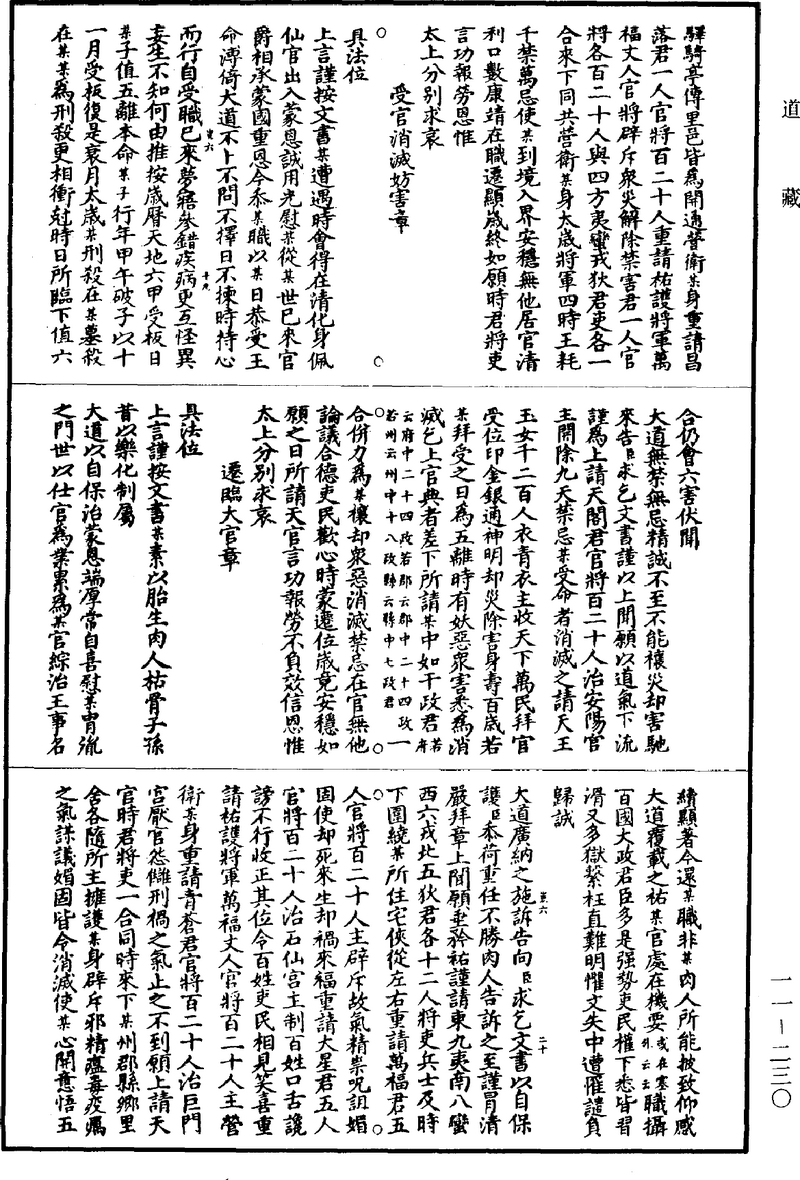 道藏
驛騎亭傳里邑皆為開通營衛某身重請昌
落君一人官將百二十人重請祐護將軍萬
福丈人官將辟斥衆災解除禁害君一人官
將各百二十人與四方夷蠻戎狄君吏各一
合來下同共營衛某身太歲將軍四時王耗
千禁萬忌使某到境入界安穩無他居官清
利口數康靖在職遷顯歲終如願時君將吏
言功報勞恩惟
太上分別求哀
受官消滅妨害章
具法位
上言謹按文書某遭遇時會得在清化身佩
仙官出入蒙恩誠用光慰某從某世已來官
爵相承蒙國重恩今忝某職以某日恭受王
命溥倚大道不卜不問不擇日不揀時持心
而行自受職已來夢寤參錯疾病更互怪異
妄生不知何由推按歲曆天地六甲受板日
某子值五離本命某子行年甲午破子以十
一月受板復是衰月太歲某刑殺在某墓殺
在某某為刑殺更相衝剋時日所臨下值六
合仍會六害伏聞
大道無禁無忌精誠不至不能穰災却害馳
來告臣求乞文書謹以上聞願以道氣下流
謹為上請天閣君官將百二十人治安陽宮
主開除九天禁忌某受命者消滅之請天王
玉女千二百人衣青衣主收天下萬民拜官
受位印金銀通神明却災除害身壽百歲若
某拜受之日為五離時有妖惡衆害悉為消
滅乞上官典者差下所請某中如干政君若府
云府中二十四政若郡云郡中二十四政
若州云州中十八政縣云縣中七政君一
合併力為某穰却衆惡消滅禁忌在官無他
論議合德吏民歡心時蒙遷位歲竟安穩如
願之日所請天官言功報勞不負效信恩惟
太上分別求哀
遷臨大官章
具法位
上言謹按文書某素以胎生肉人枯骨子孫
昔以樂化制屬
大道以自保治蒙恩端厚常自喜慰某胄胤
之門世以仕官為業累為某官綜治王事名
績顯著今還某職非某肉人所能披致仰感
大道覆載之祐某官處在機要或在塞外云云職攝
百國大政君臣多是强勢吏民權下悉皆習
滑又多獄繫枉直難明懼文失中遭罹譴負
歸誠
大道廣納之施訴告向臣求乞文書以自保
護臣忝荷重任不勝肉人告訴之至謹冒清
嚴拜章上聞願垂矜祐謹請東九夷南八蠻
西六戎北五狄君各十二人將吏兵士及時
下圍繞某所住宅俠從左右重請萬福君五
人官將百二十人主辟斥故氣精祟呪詛媚
固使却死來生却禍來福重請大星君五人
官將百二十人治石仙宮主制百姓口舌讒
謗不行收正其位令百姓吏民相見笑喜重
請祐護將軍萬福丈人官將百二十人主營
衛某身重請青蒼君官將百二十人治巨門
宮厭官怨讎刑禍之氣止之不到願上請天
官時君將吏一合同時來下某州郡縣鄉里
舍各隨所主擁護某身辟斥邪精瘟毒疫癘
之氣謀議媚固皆令消滅使某心開意悟五
一一—二三〇